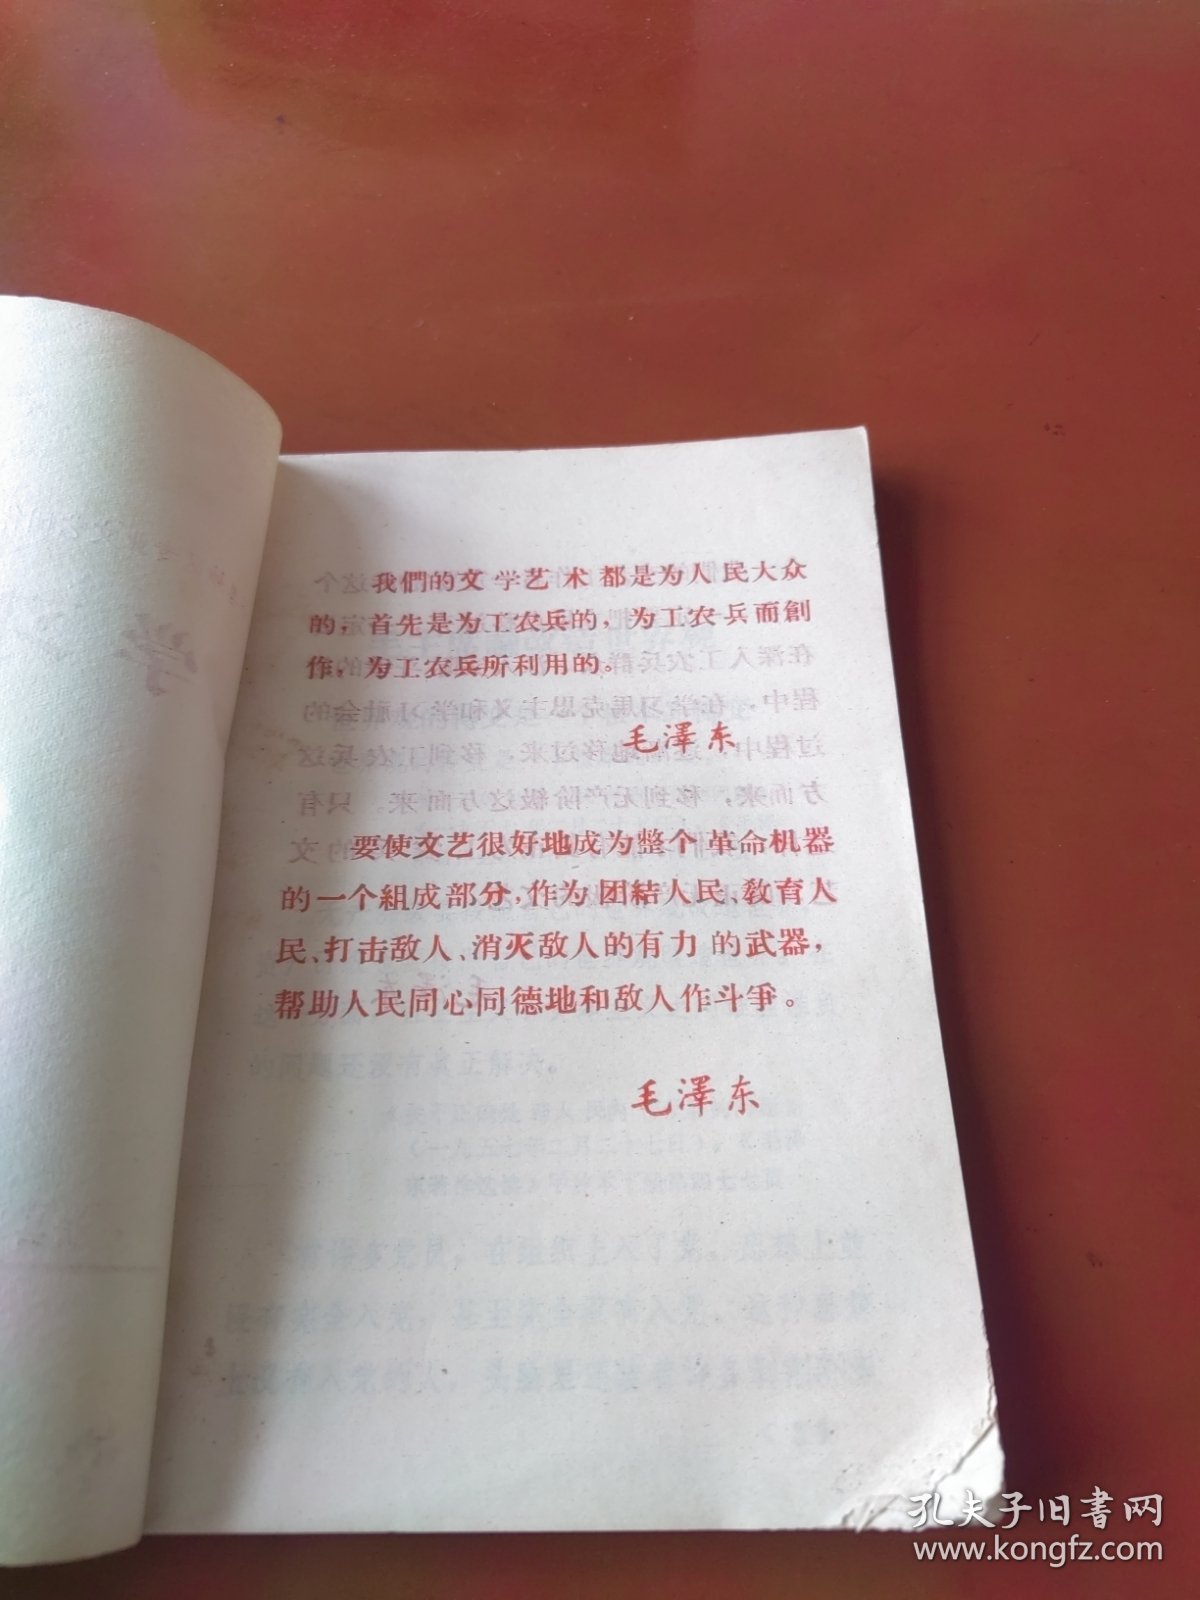 我們的文学艺术都是为人民大众
的，首先是为工农兵的，为工农兵而創
作，为工农兵所利用的。
毛澤东
要使文艺很好地成为整个革命机器
的一个組成部分，作为团結人民、教育人
民、打击敌人、消灭敌人的有力的武器，
帮助人民同心同德地和敌人作斗爭。
毛澤东
孔夫子旧书网
www.kongfz.com